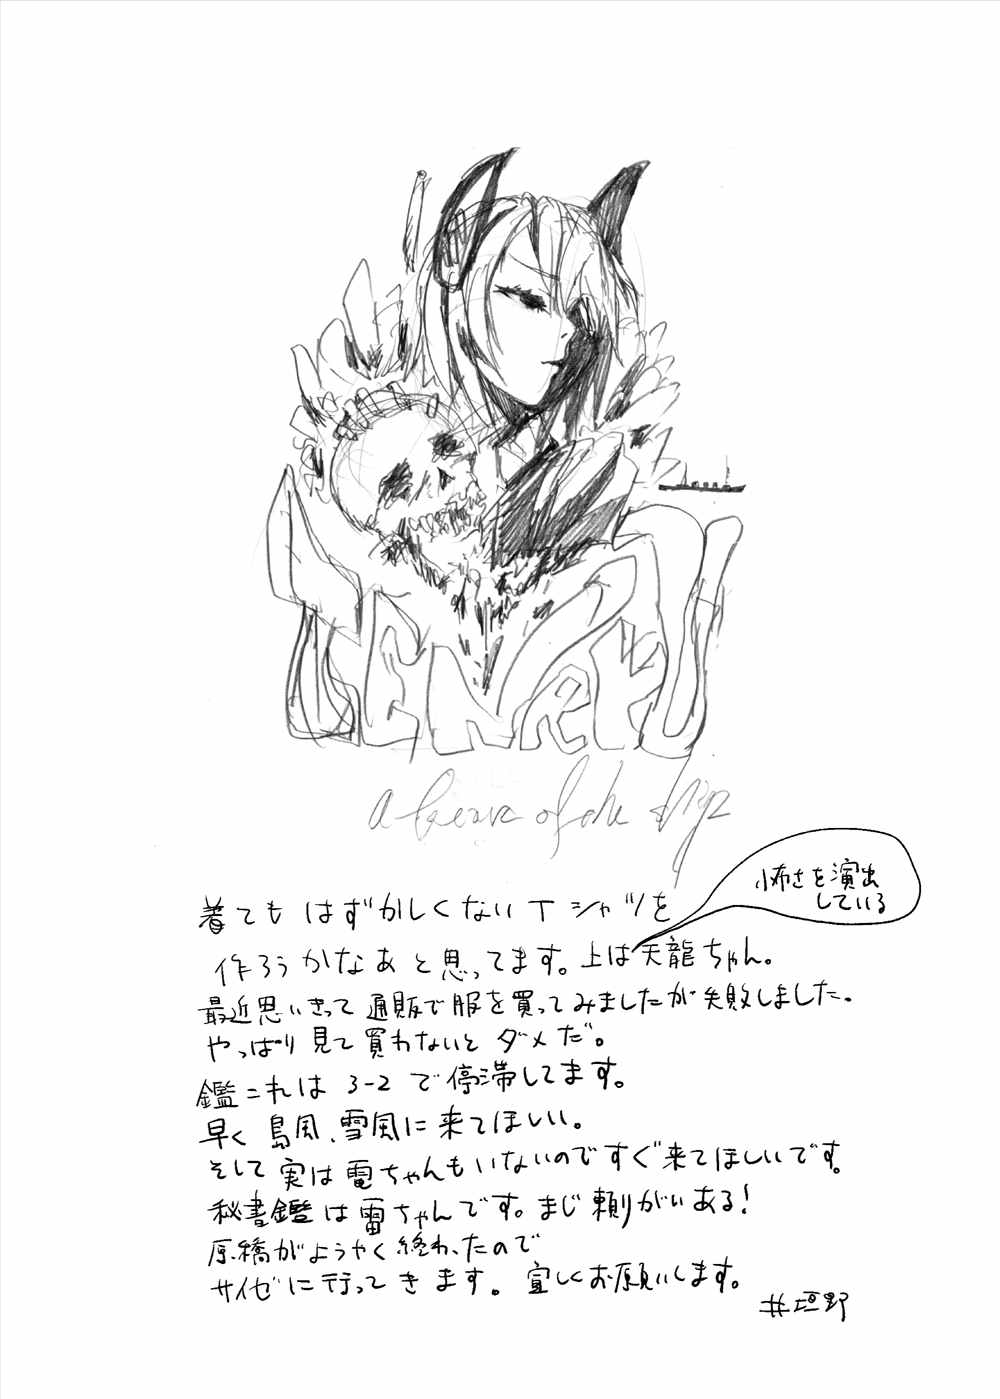 TENRYU
a brave of the ship
怖さを演出
している
着てもはずかしくないTシャツを
作ろうかなあと思ってます。上は天龍ちゃん。
最近思いきって通販で服を買ってみましたが失敗しました。
やっぱり見て買わないとダメだ。
鑑これは3-2で停滞してます。
早く島風、雪風に来てほしい。
そして実は電ちゃんもいないのですぐ来てほしいです。
秘書鑑は雷ちゃんです。まじ頼りがいある!
原稿がようやく終わったので
サイゼに行ってきます。宜しくお願いします。
井垣野